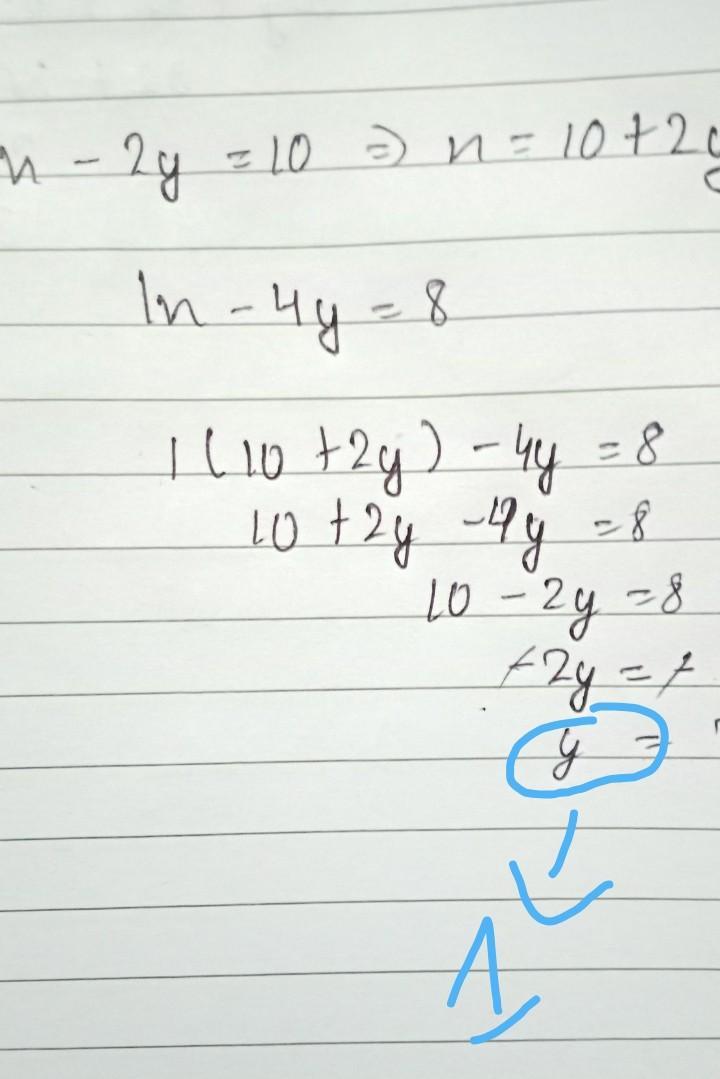 n - 2y = 10 ⇒ n = 10 + 2y
1n - 4y = 8
1(10 + 2y) - 4y = 8
10 + 2y - 4y = 8
10 - 2y = 8
-2y = -
y =
1